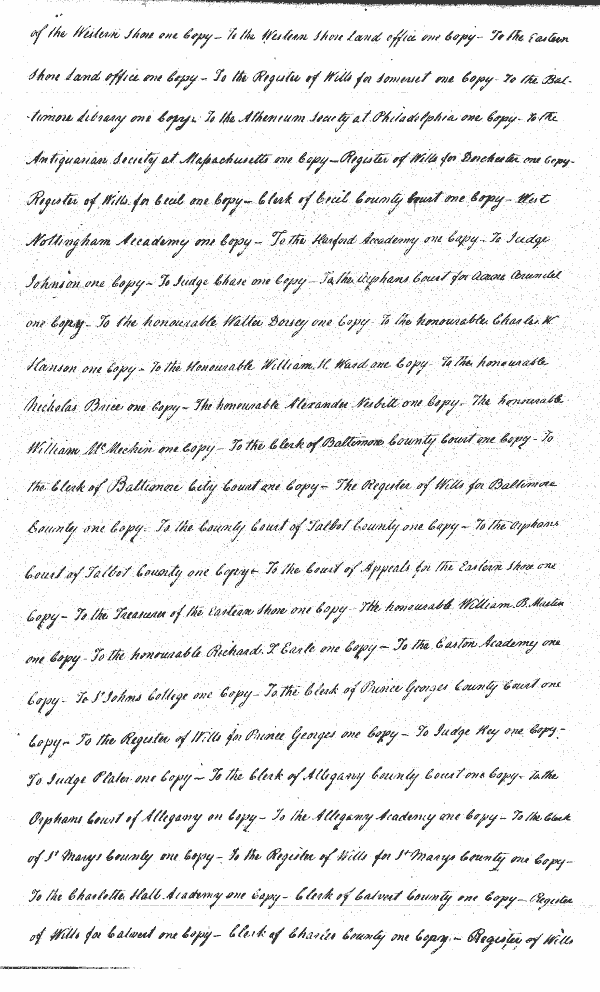 of the Western Shore one Copy – To the Western Shore Land office one Copy – To the Eastern
Shore Land office one Copy – To the Register of Wills for Somerset one Copy – To the Bal-
-timore Library one Copy. To the Atheneum Society at Philadelphia one Copy – To the
Antiquarian Society at Massachusetts one Copy – Register of Wills for Dorchester one Copy –
Register of Wills for Cecil one Copy – Clerk of Cecil County Court one Copy – West
Nottingham Accademy one Copy – To the Harford Accademy one Copy – To Judge
Johnson one Copy – To Judge Chase one Copy – To the Orphans Court for Anne Arundel
one Copy – To the honourable Walter Dorsey one Copy – To the honourable Charles W
Hanson one Copy – To the Honourable William H. Ward one Copy – To the honourable
Nicholas Brice one Copy – The honourable Alexander Nesbitt one Copy – The honourable
William McMechin one Copy – To the Clerk of Baltimore County Court one Copy – To
the Clerk of Baltimore City Court one Copy – The Register of Wills for Baltimore
County one Copy. To the County Court of Talbot County one Copy – To the Orphans
Court of Talbot County one Copy – To the Court of Appeals for the Eastern Shore one
Copy – To the Treasurer of the Eastern Shore one Copy – The honourable William B. Martin
one Copy – To the honourable Richard T Earle one Copy – To the Easton Academy one
Copy – To St Johns College one Copy – To the Clerk of Prince Georges County Court one
Copy – To the Register of Wills for Prince Georges one Copy – To Judge Key one Copy –
To Judge Plater one Copy – To the Clerk of Allegany County Court one Copy – To the
Orphans Court of Allegany on Copy – To the Allegany Academy one Copy – To the Clerk
of St Marys County one Copy – To the Register of Wills for St Marys County one Copy –
To the Charlotte Hall Academy one Copy – Clerk of Calvert County one Copy – Register
of Wills for Calvert one Copy – Clerk of Charles County one Copy – Register of Wills